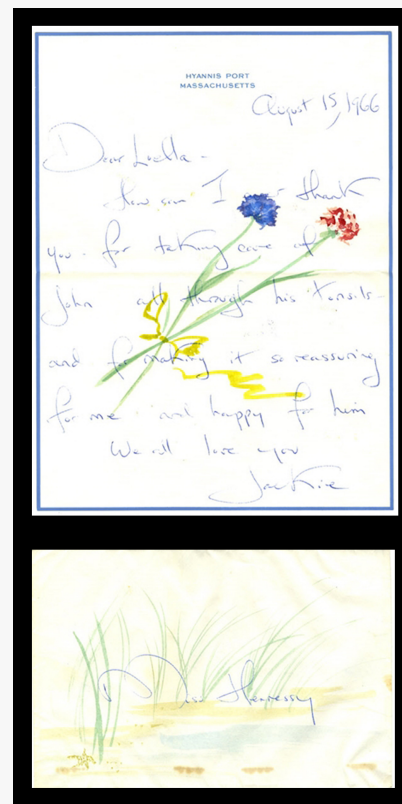 HYANNIS PORT
MASSACHUSETTS
August 15, 1966
Dear Luella -
How can I ever thank
you for taking care of
John all through his tonsils -
and for making it so reassuring
for me and happy for him
We all love you
Jackie
Miss Hennessy